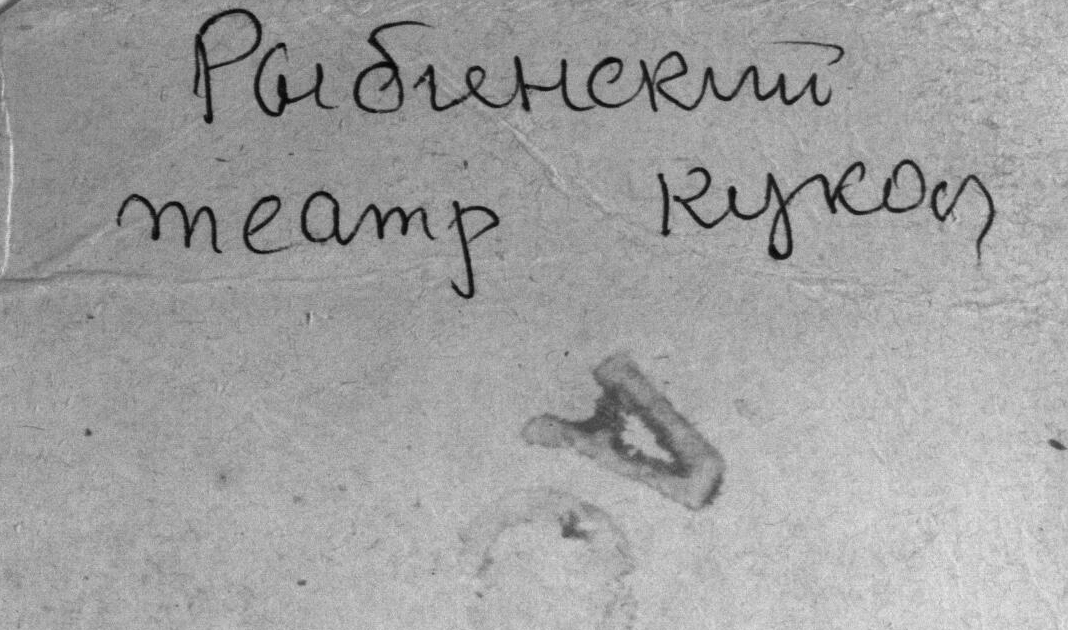 Рыбинский
театр кукол